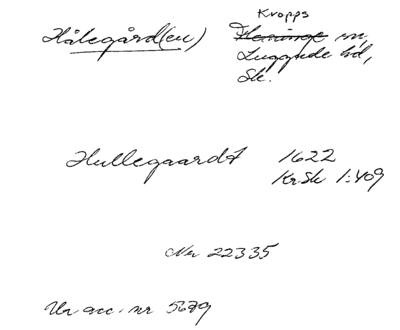 Kropps
Hålegård(en) sn,
Luggude hd,
Sk.
Hullegaardt 1622
KrSk 1:409
Nr 22335
Ur acc. nr 5679